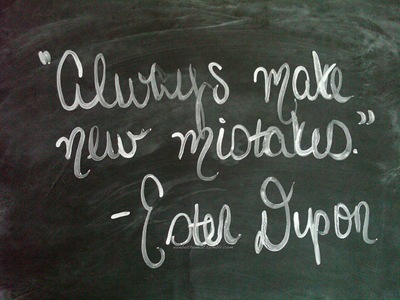 "Always make
new mistakes."
-Ester Dypon